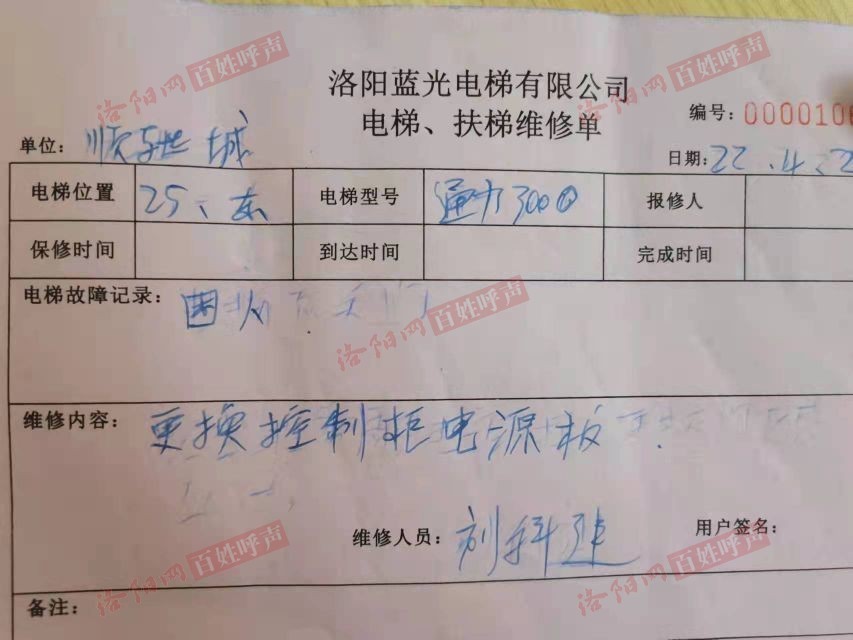 洛阳蓝光电梯有限公司
电梯、扶梯维修单
编号：0000106
单位：顺驰城
日期：22.4.2
电梯位置 25、东 电梯型号 通力3000 报修人
保修时间 到达时间 完成时间
电梯故障记录：
维修内容：更换控制柜电源板.
维修人员：刘科建
用户签名：
备注：
洛阳网 百姓呼声
洛阳网 百姓呼声
洛阳网 百姓呼声
洛阳网 百姓呼声
洛阳网 百姓呼声